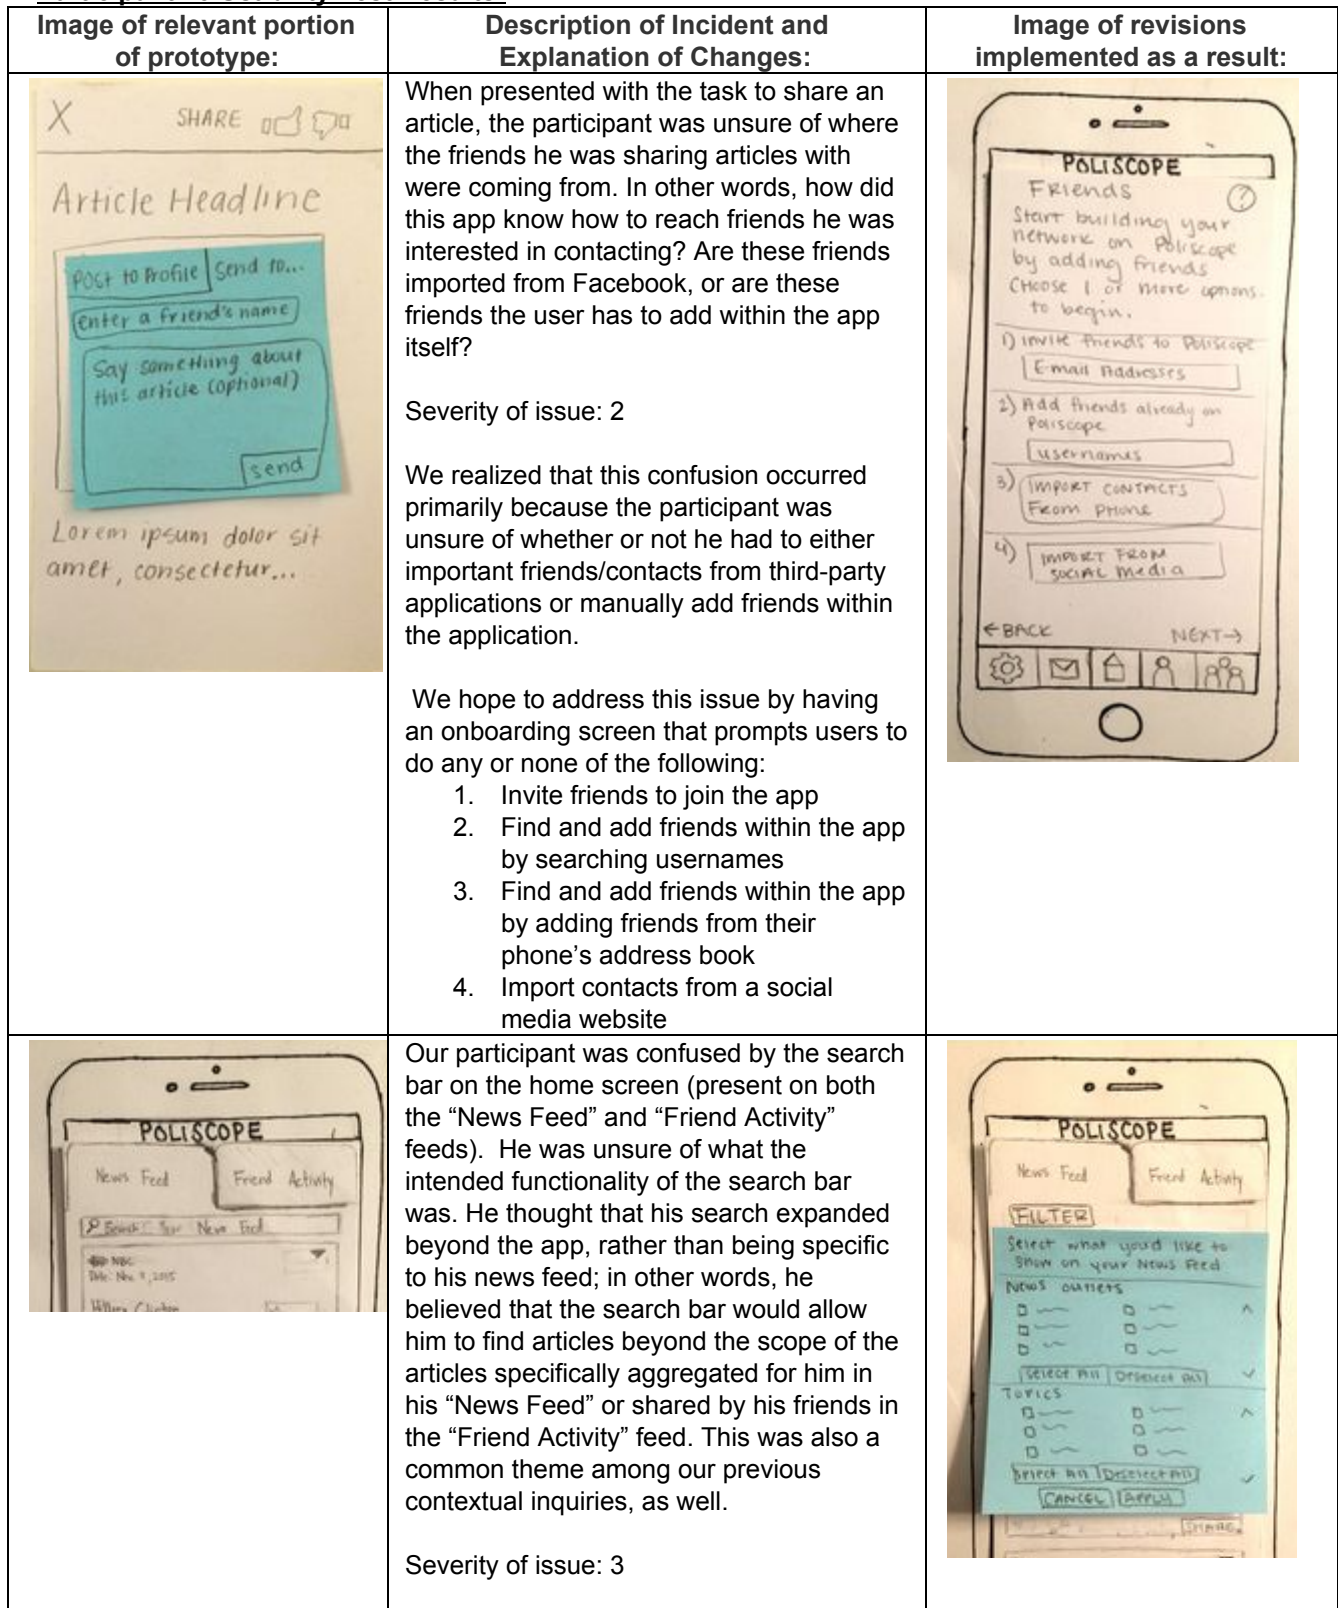 Image of relevant portion
of prototype:
Description of Incident and
Explanation of Changes:
Image of revisions
implemented as a result:
X SHARE
Article Headline
Post to Profile Send to...
enter a friend's name
Say something about
this article (optional)
send
Lorem ipsum dolor sit
amet, consectetur...
When presented with the task to share an
article, the participant was unsure of where
the friends he was sharing articles with
were coming from. In other words, how did
this app know how to reach friends he was
interested in contacting? Are these friends
imported from Facebook, or are these
friends the user has to add within the app
itself?
Severity of issue: 2
We realized that this confusion occurred
primarily because the participant was
unsure of whether or not he had to either
important friends/contacts from third-party
applications or manually add friends within
the application.
We hope to address this issue by having
an onboarding screen that prompts users to
do any or none of the following:
1. Invite friends to join the app
2. Find and add friends within the app
by searching usernames
3. Find and add friends within the app
by adding friends from their
phone’s address book
4. Import contacts from a social
media website
POLISCOPE
Friends ?
Start building your
network on Poliscope
by adding friends
Choose 1 or more options
to begin.
1) Invite friends to Poliscope
E-mail Addresses
2) Add friends already on
Poliscope
usernames
3) IMPORT CONTACTS
From PHONE
4) IMPORT FROM
SOCIAL Media
←BACK NEXT→
POLISCOPE
News Feed Friend Activity
Search News Feed
NBC
Date: Nov 2015
Hillary Clinton
Our participant was confused by the search
bar on the home screen (present on both
the “News Feed” and “Friend Activity”
feeds). He was unsure of what the
intended functionality of the search bar
was. He thought that his search expanded
beyond the app, rather than being specific
to his news feed; in other words, he
believed that the search bar would allow
him to find articles beyond the scope of the
articles specifically aggregated for him in
his “News Feed” or shared by his friends in
the “Friend Activity” feed. This was also a
common theme among our previous
contextual inquiries, as well.
Severity of issue: 3
POLISCOPE
News Feed Friend Activity
FILTER
Select what you'd like to
show on your News Feed
News outlets
Select All Deselect All
TOPICS
Select All Deselect All
CANCEL APPLY
SHARE